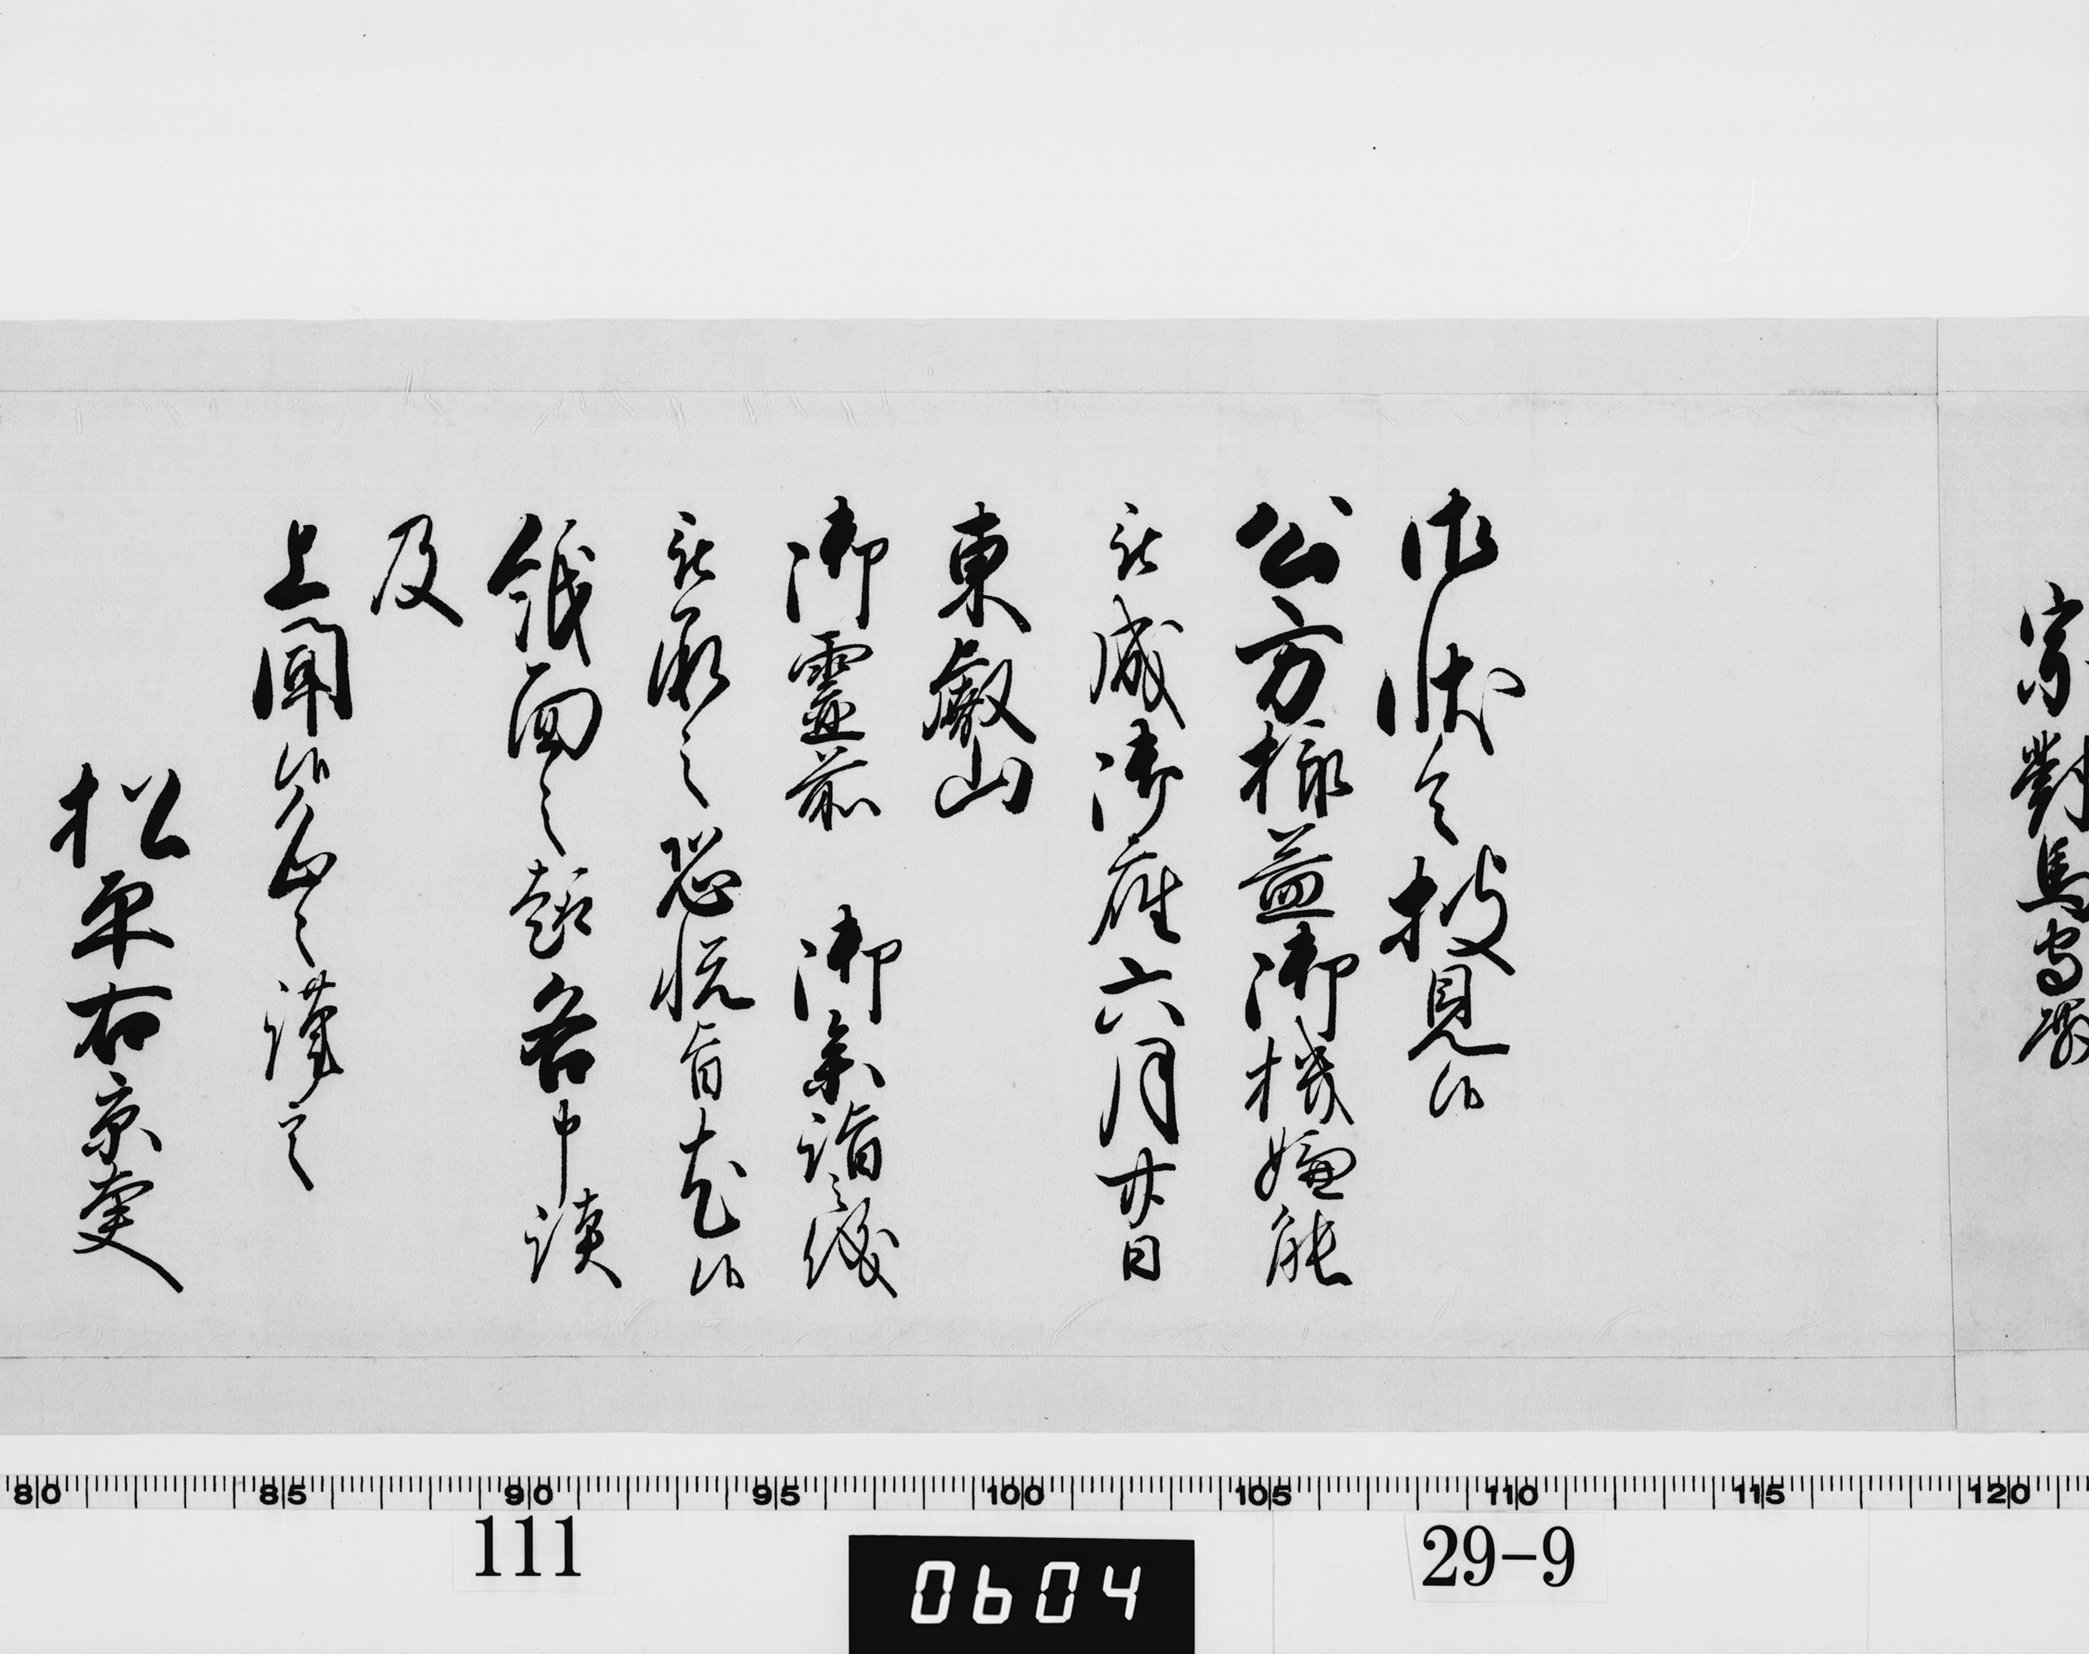 宗對馬守殿
御状令披見候
公方様益御機嫌能
被成御座六月廿日
東叡山
御霊前 御参詣之儀
被承之恐悦旨尤候
紙面之趣各申談
及
上聞候処之謹言
松平右京大夫
80 85 90 95 100 105 110 115 120
111
29-9
0604